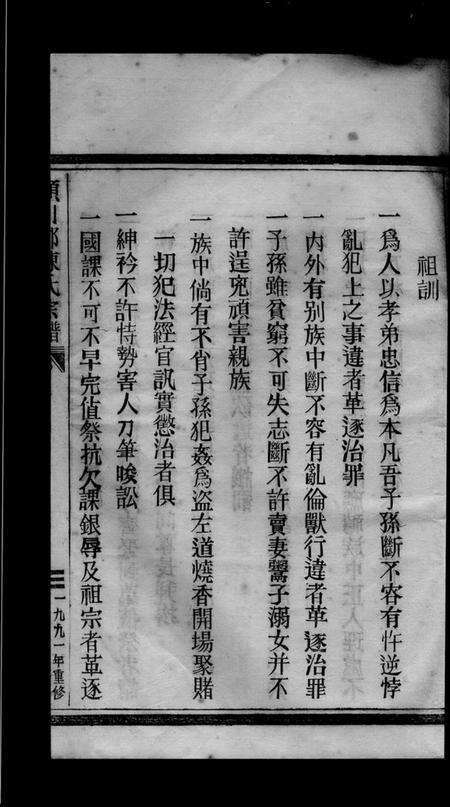 祖訓
一爲人以孝弟忠信爲本凡吾子孫斷不容有忤逆悖
亂犯上之事違者革逐治罪
一內外有別族中斷不容有亂倫獸行違者革逐治罪
一子孫雖貧窮不可失志斷不許賣妻鬻子溺女并不
許逞兇頑害親族
一族中倘有不肖子孫犯姦爲盜左道燒香開場聚賭
一切犯法經官訊實懲治者俱
一紳衿不許恃勢害人刀筆唆訟
一國課不可不早完値祭抗欠課銀辱及祖宗者革逐
潁川郡陳氏宗譜
一九九一年重修